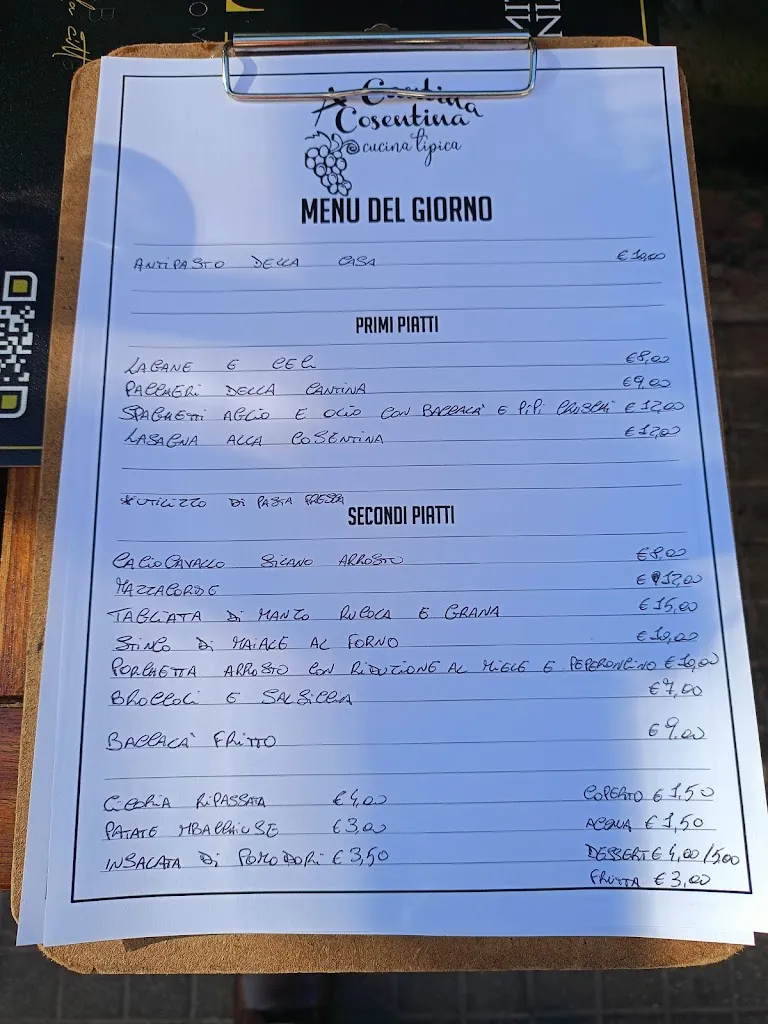 A Cantina
Cosentina
cucina tipica
MENU DEL GIORNO
ANTIPASTO DELLA CASA €10,00
PRIMI PIATTI
LAGANE E CECI €8,00
PACCHERI DELLA CANTINA €9,00
SPAGHETTI AGLIO E OLIO CON BACCALA' E PIPI CRUSCHI €12,00
LASAGNA ALLA COSENTINA €12,00
*UTILIZZO DI PASTA FRESCA
SECONDI PIATTI
CACIOCAVALLO SILANO ARROSTO €8,00
MAZZACORDE €12,00
TAGLIATA DI MANZO RUCOLA E GRANA €15,00
STINCO DI MAIALE AL FORNO €10,00
PORCHETTA ARROSTO CON RIDUZIONE AL MIELE E PEPERONCINO €10,00
BROCCOLI E SALSICCIA €7,00
BACCALA' FRITTO €9,00
CICORIA RIPASSATA €4,00 COPERTO €1,50
PATATE MBACCHIUSE €3,00 ACQUA €1,50
INSALATA DI POMODORI €3,50 DESSERT €4,00/500
FRUTTA €3,00